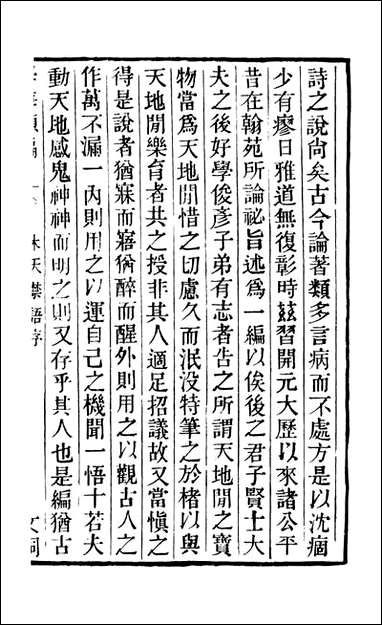 詩之說尙矣古今論著類多言病而不處方是以沈痼
少有瘳日雅道無復彰時茲習開元大歷以來諸公平
昔在翰苑所論祕旨述爲一編以俟後之君子賢士大
夫之後好學俊彥子弟有志者告之所謂天地閒之寶
物當爲天地閒惜之切慮久而泯没特筆之於楮以與
天地閒樂育者共之授非其人適足招議故又當愼之
得是說者猶寐而寤猶醉而醒外則用之以觀古人之
作萬不漏一内則用之以運自己之機聞一悟十若夫
動天地感鬼神神而明之則又存乎其人也是編猶古
類編 天禁語序